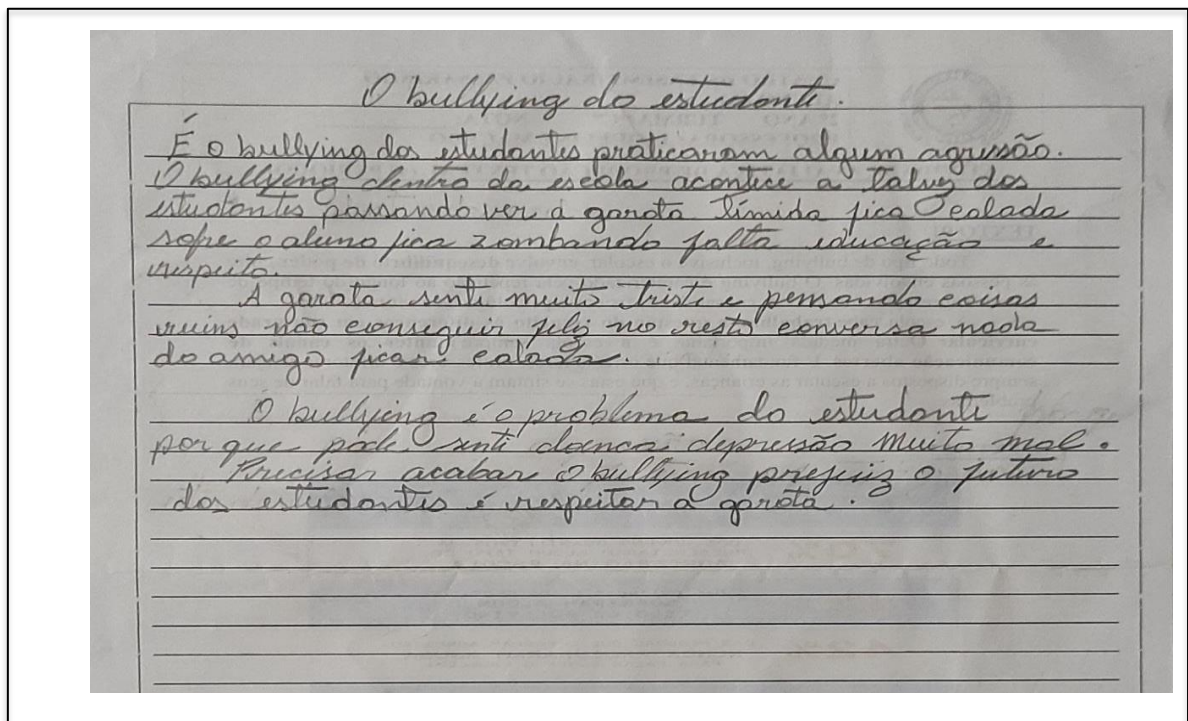 O bullying do estudante.
É o bullying dos estudantes praticaram algum agrusão.
O bullying dentro da escola acontece a talvez dos
estudantes passando ver a garota tímida fica calada
sofre o aluno fica zombando falta educação e
respeito.
A garota senti muito triste e pensando coisas
ruins não conseguir feliz no resto conversa nada
do amigo ficar calada.
O bullying é o problema do estudante
porque pode senti doença depressão muito mal.
Precisar acabar o bullying prejuiz o futuro
dos estudantes é respeitar a garota.